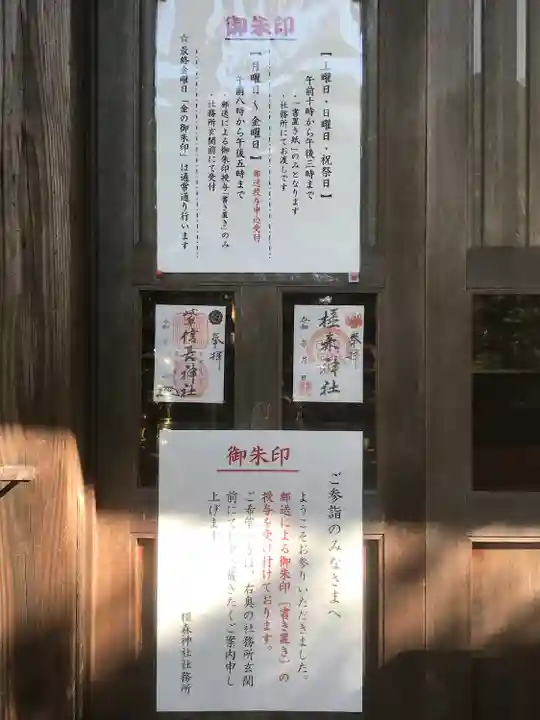 御朱印
【土曜日・日曜日・祝祭日】
午前十時から午後三時まで
・「書置き紙」のみとなります
・社務所にてお渡しです
【月曜日〜金曜日】郵送授与申込受付
午前八時から午後五時まで
・郵送による御朱印授与「書き置き」のみ
・社務所玄関前にて受付
☆最終金曜日「金の御朱印」は通常通り行います
奉拝
橿森神社
令和 年 月 日
奉拝
信長神社
令和
御朱印
ご参詣のみなさまへ
ようこそお参りいただきました。
郵送による御朱印「書き置き」の
授与を受け付けております。
ご希望 は、右奥の社務所玄関
前にて 戴きたくご案内申し
上げます
橿森神社社務所